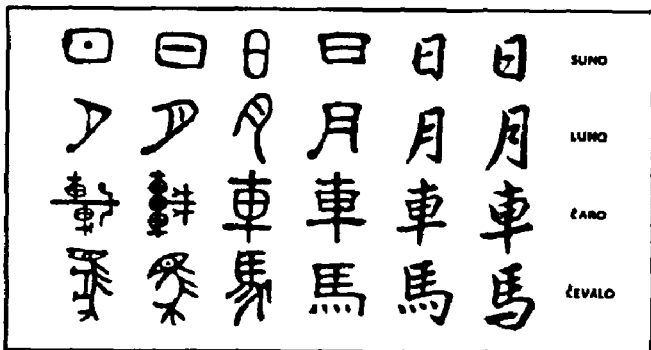 日 日 日 日 SUNO
月 月 月 月 LUNO
車 車 車 車 ĈARO
馬 馬 馬 馬 ĈEVALO